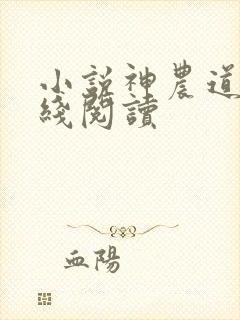 小說神農道
綫閱讀
血陽